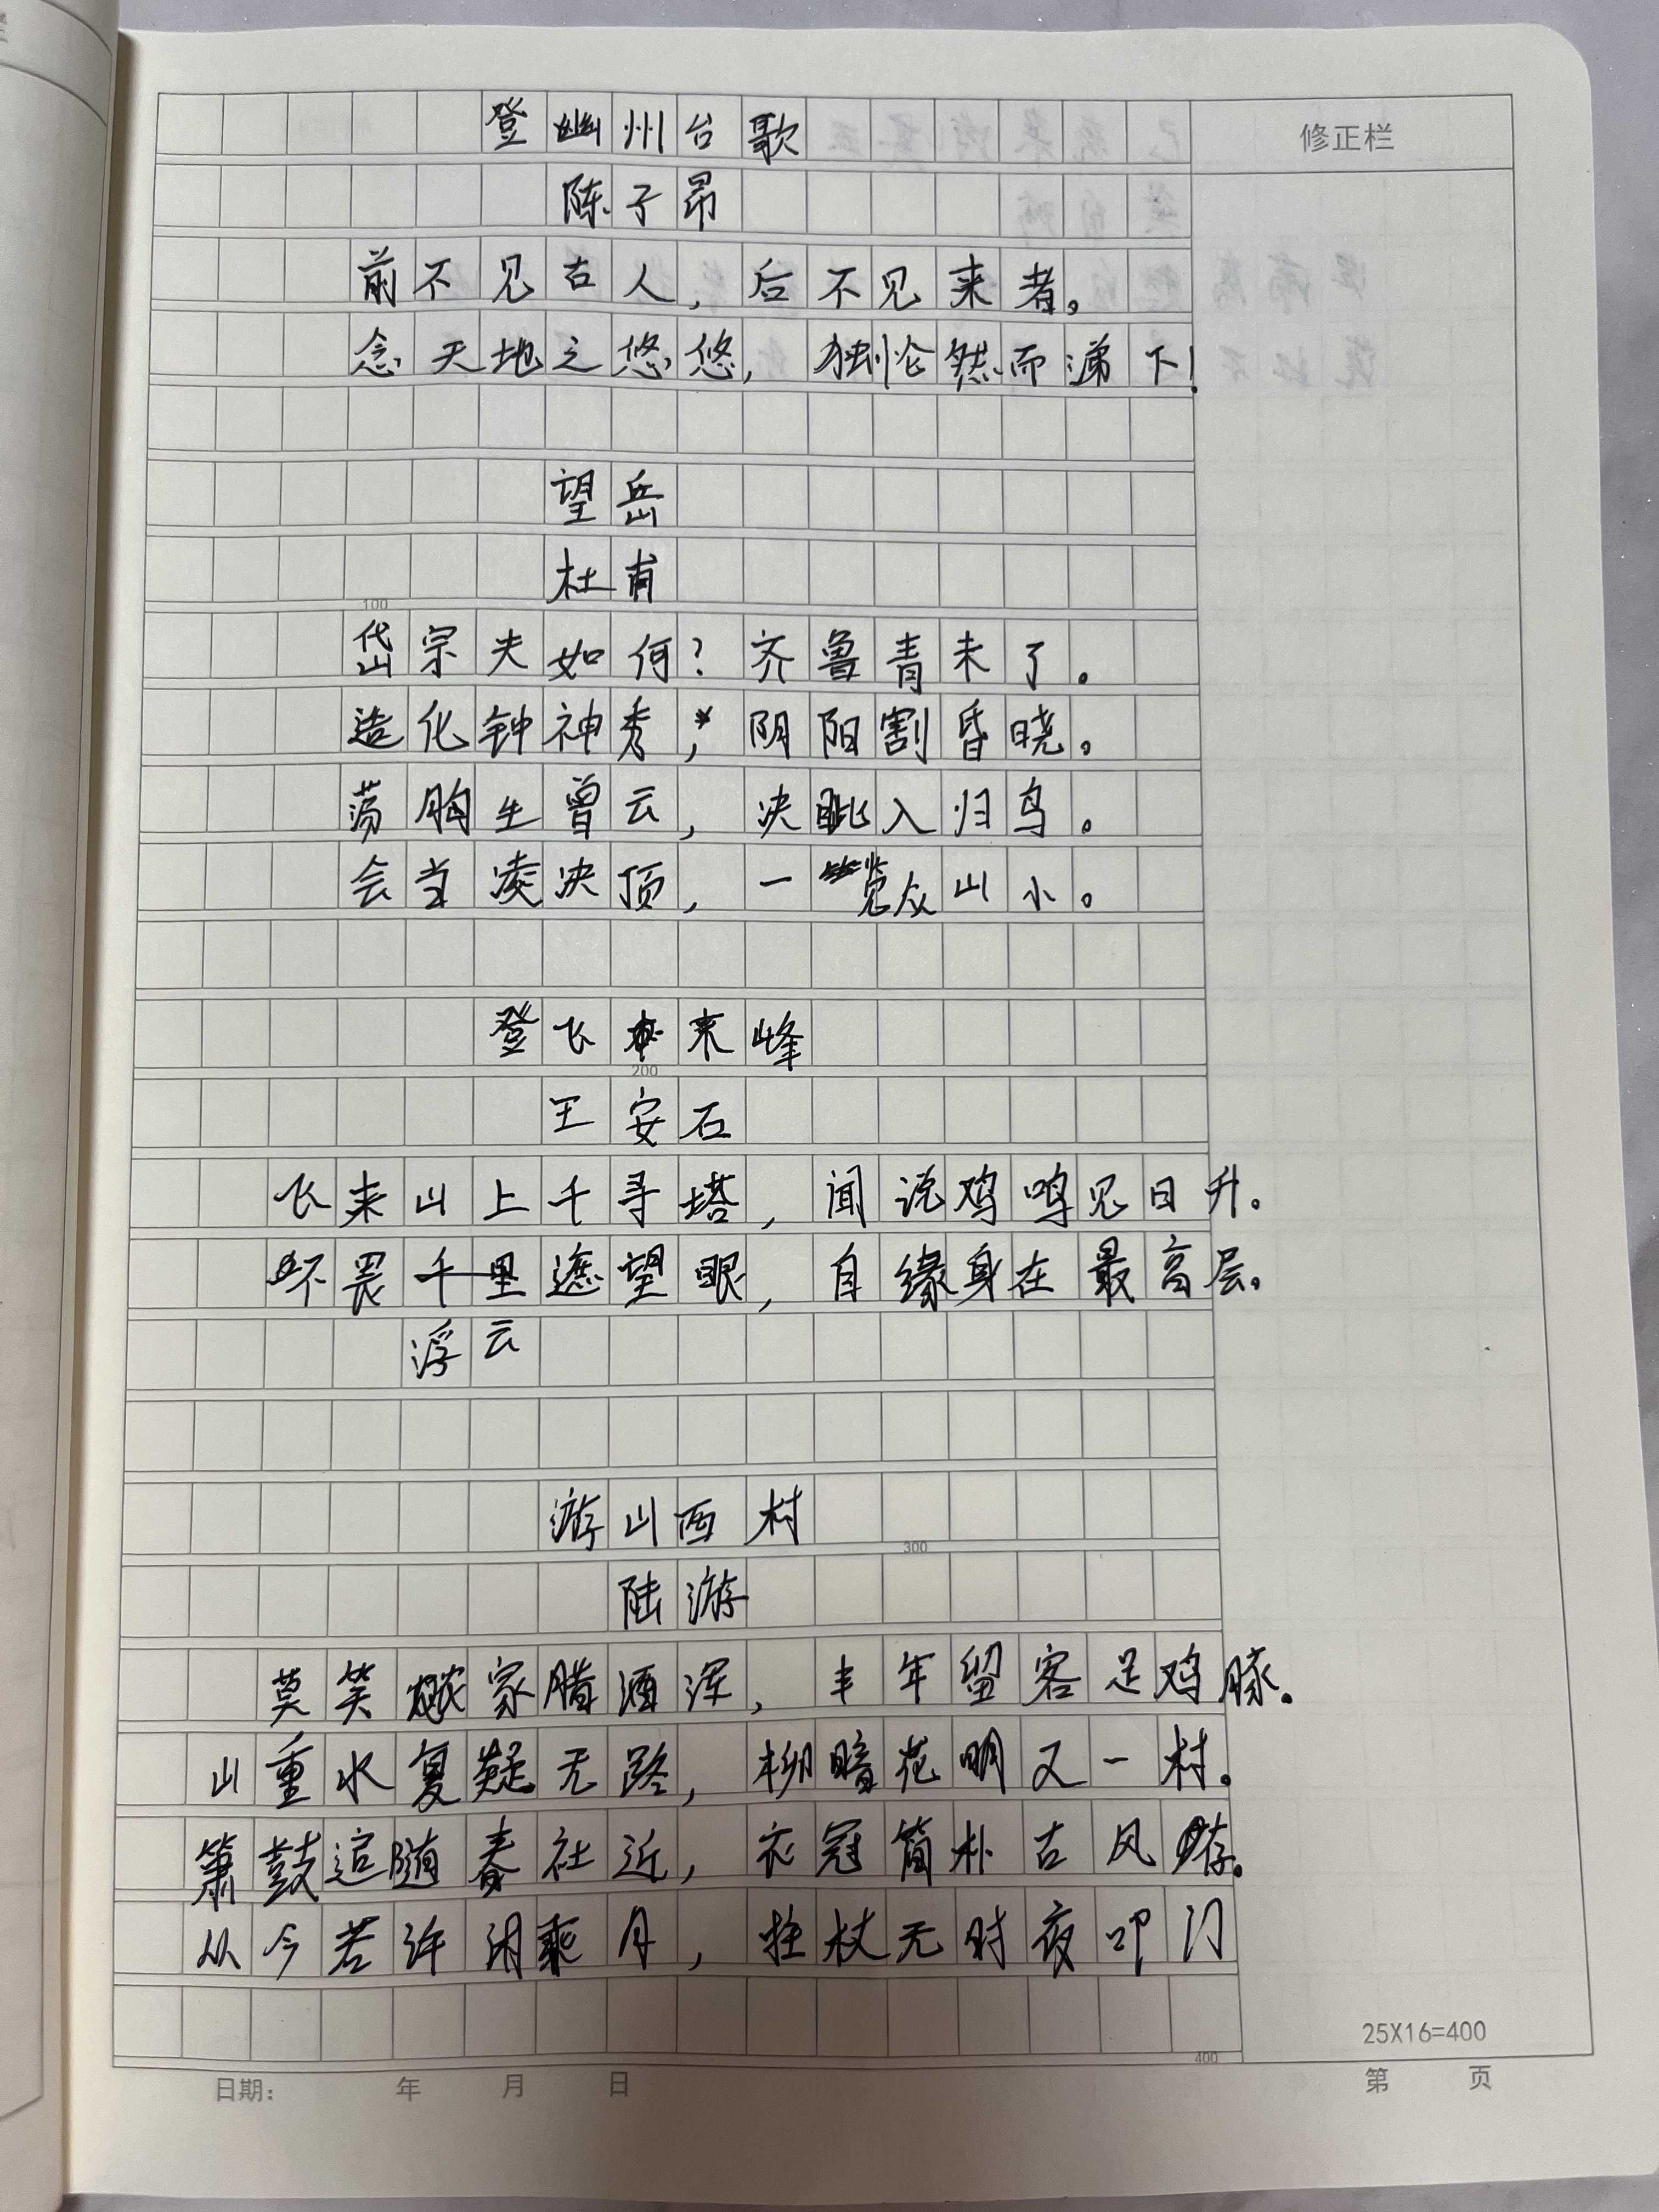 登幽州台歌
修正栏
陈子昂
前不见古人，后不见来者。
念天地之悠悠，独怆然而涕下！
望岳
杜甫
100
岱宗夫如何？齐鲁青未了。
造化钟神秀，阴阳割昏晓。
荡胸生曾云，决眦入归鸟。
会当凌决顶，一览众山小。
登飞来峰
200
王安石
飞来山上千寻塔，闻说鸡鸣见日升。
不畏千里遮望眼，自缘身在最高层。
浮云
游山西村
300
陆游
莫笑农家腊酒浑，丰年留客足鸡豚。
山重水复疑无路，柳暗花明又一村。
箫鼓追随春社近，衣冠简朴古风存。
从今若许闲乘月，拄杖无时夜叩门
25X16=400
400
日期： 年 月 日
第 页